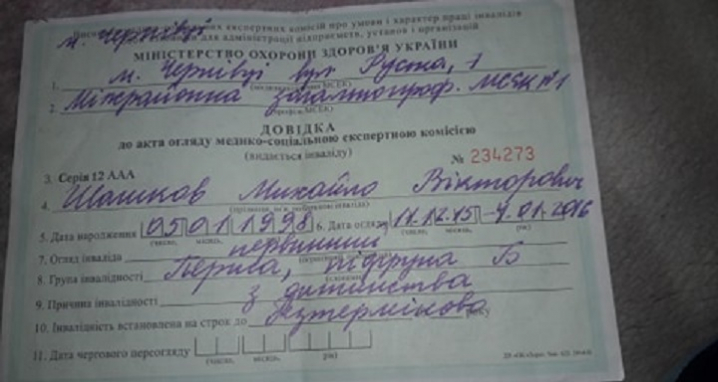 м. Чернівці
експертних комісій про умови і характер праці інвалідів
для адміністрації підприємств, установ і організацій
МІНІСТЕРСТВО ОХОРОНИ ЗДОРОВ'Я УКРАЇНИ
1. м. Чернівці вул Руська, 1
2. Міжрайонна загальнопроф. МСЕК №1
ДОВІДКА
до акта огляду медико-соціальною експертною комісією
(видається інваліду)
3. Серія 12 ААА № 234273
4. Шашков Михайло Вікторович
5. Дата народження 05011998 6. Дата огляду 11.12.15-4.01.2016
(число, місяць, рік) (число, місяць, рік)
7. Огляд інваліда первинний
8. Група інвалідності Перша, підгрупа Б
9. Причина інвалідності з дитинства
10. Інвалідність встановлена на строк до безтерміново року
11. Дата чергового переогляду
(число, місяць, рік)